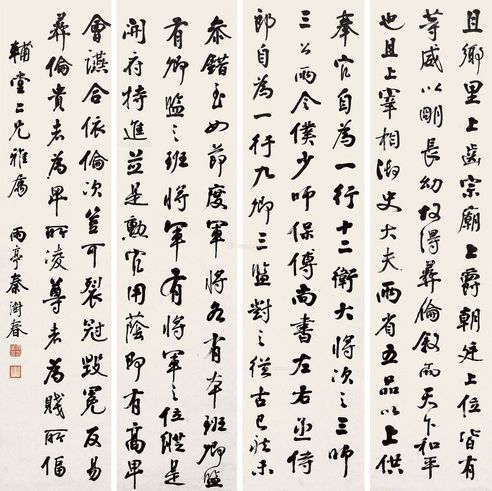 且鄉里上齒宗廟上爵朝廷上位皆有
等威以明長幼故得彝倫敘而天下和平
也且上宰相御史大夫兩省五品以上供
奉官自為一行十二衛大將次之三師
三公兩令僕少師保傅尚書左右丞侍
郎自為一行九卿三監對之從古已然未
參錯至如節度軍將各有本班卿監
有卿監之班將軍有將軍之位縱是
開府特進並是勳官用蔭即有高卑
會讌合依倫次豈可裂冠毀冕反易
彝倫貴者為卑所凌尊者為賤所偪
輔堂二兄雅屬 雨亭秦澍春